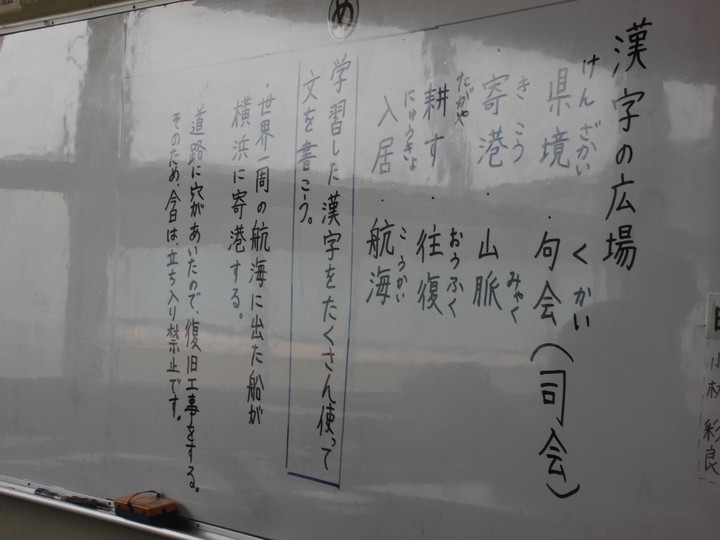 め
漢字の広場
けんざかい くかい
県境・句会(司会)
きこう みゃく
寄港・山脈
たがや おうふく
耕す・往復
にゅうきょ こうかい
入居・航海
学習した漢字をたくさん使って
文を書こう。
・世界一周の航海に出た船が
横浜に寄港する。
道路に穴があいたので、復旧工事をする。
そのため、今日は、立ち入り禁止です。
彩良